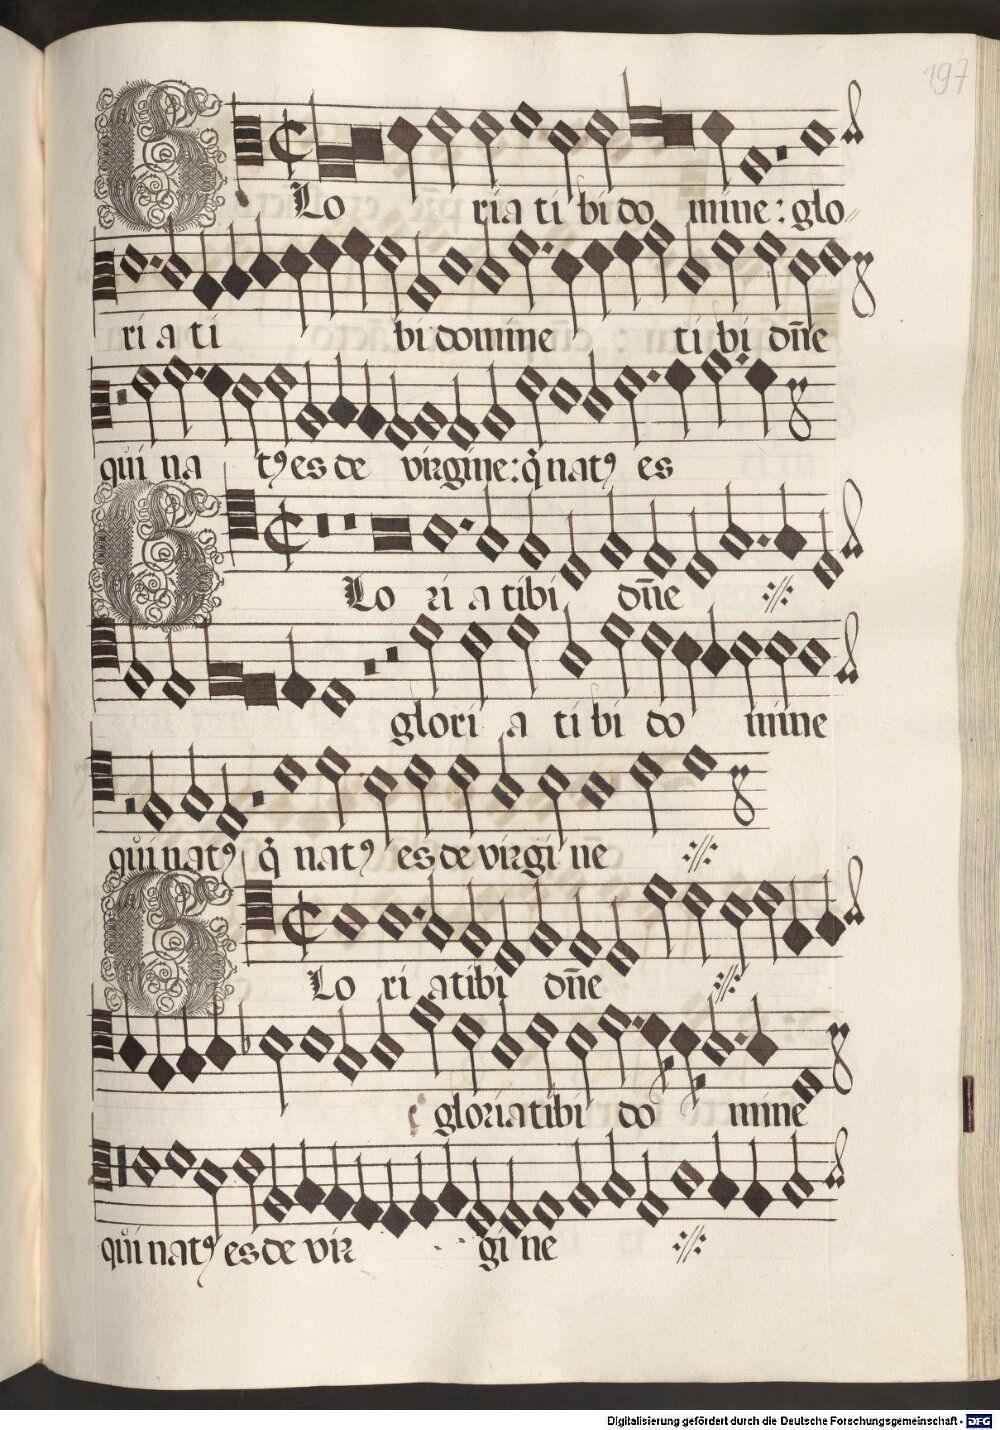 197
GLo ria ti bi do mine: glo
ri a ti bi domine ti bi dn̄e
qui na tꝰ es de virgine: q̇ natꝰ es
GLo ri a tibi dn̄e ·//·
glori a ti bi do mine
qui natꝰ q̇ natꝰ es de virgi ne ·//·
GLo ri a tibi dn̄e ·//·
gloria tibi do mine
qui natꝰ es de vir gi ne ·//·
Digitalisierung gefördert durch die Deutsche Forschungsgemeinschaft - DFG